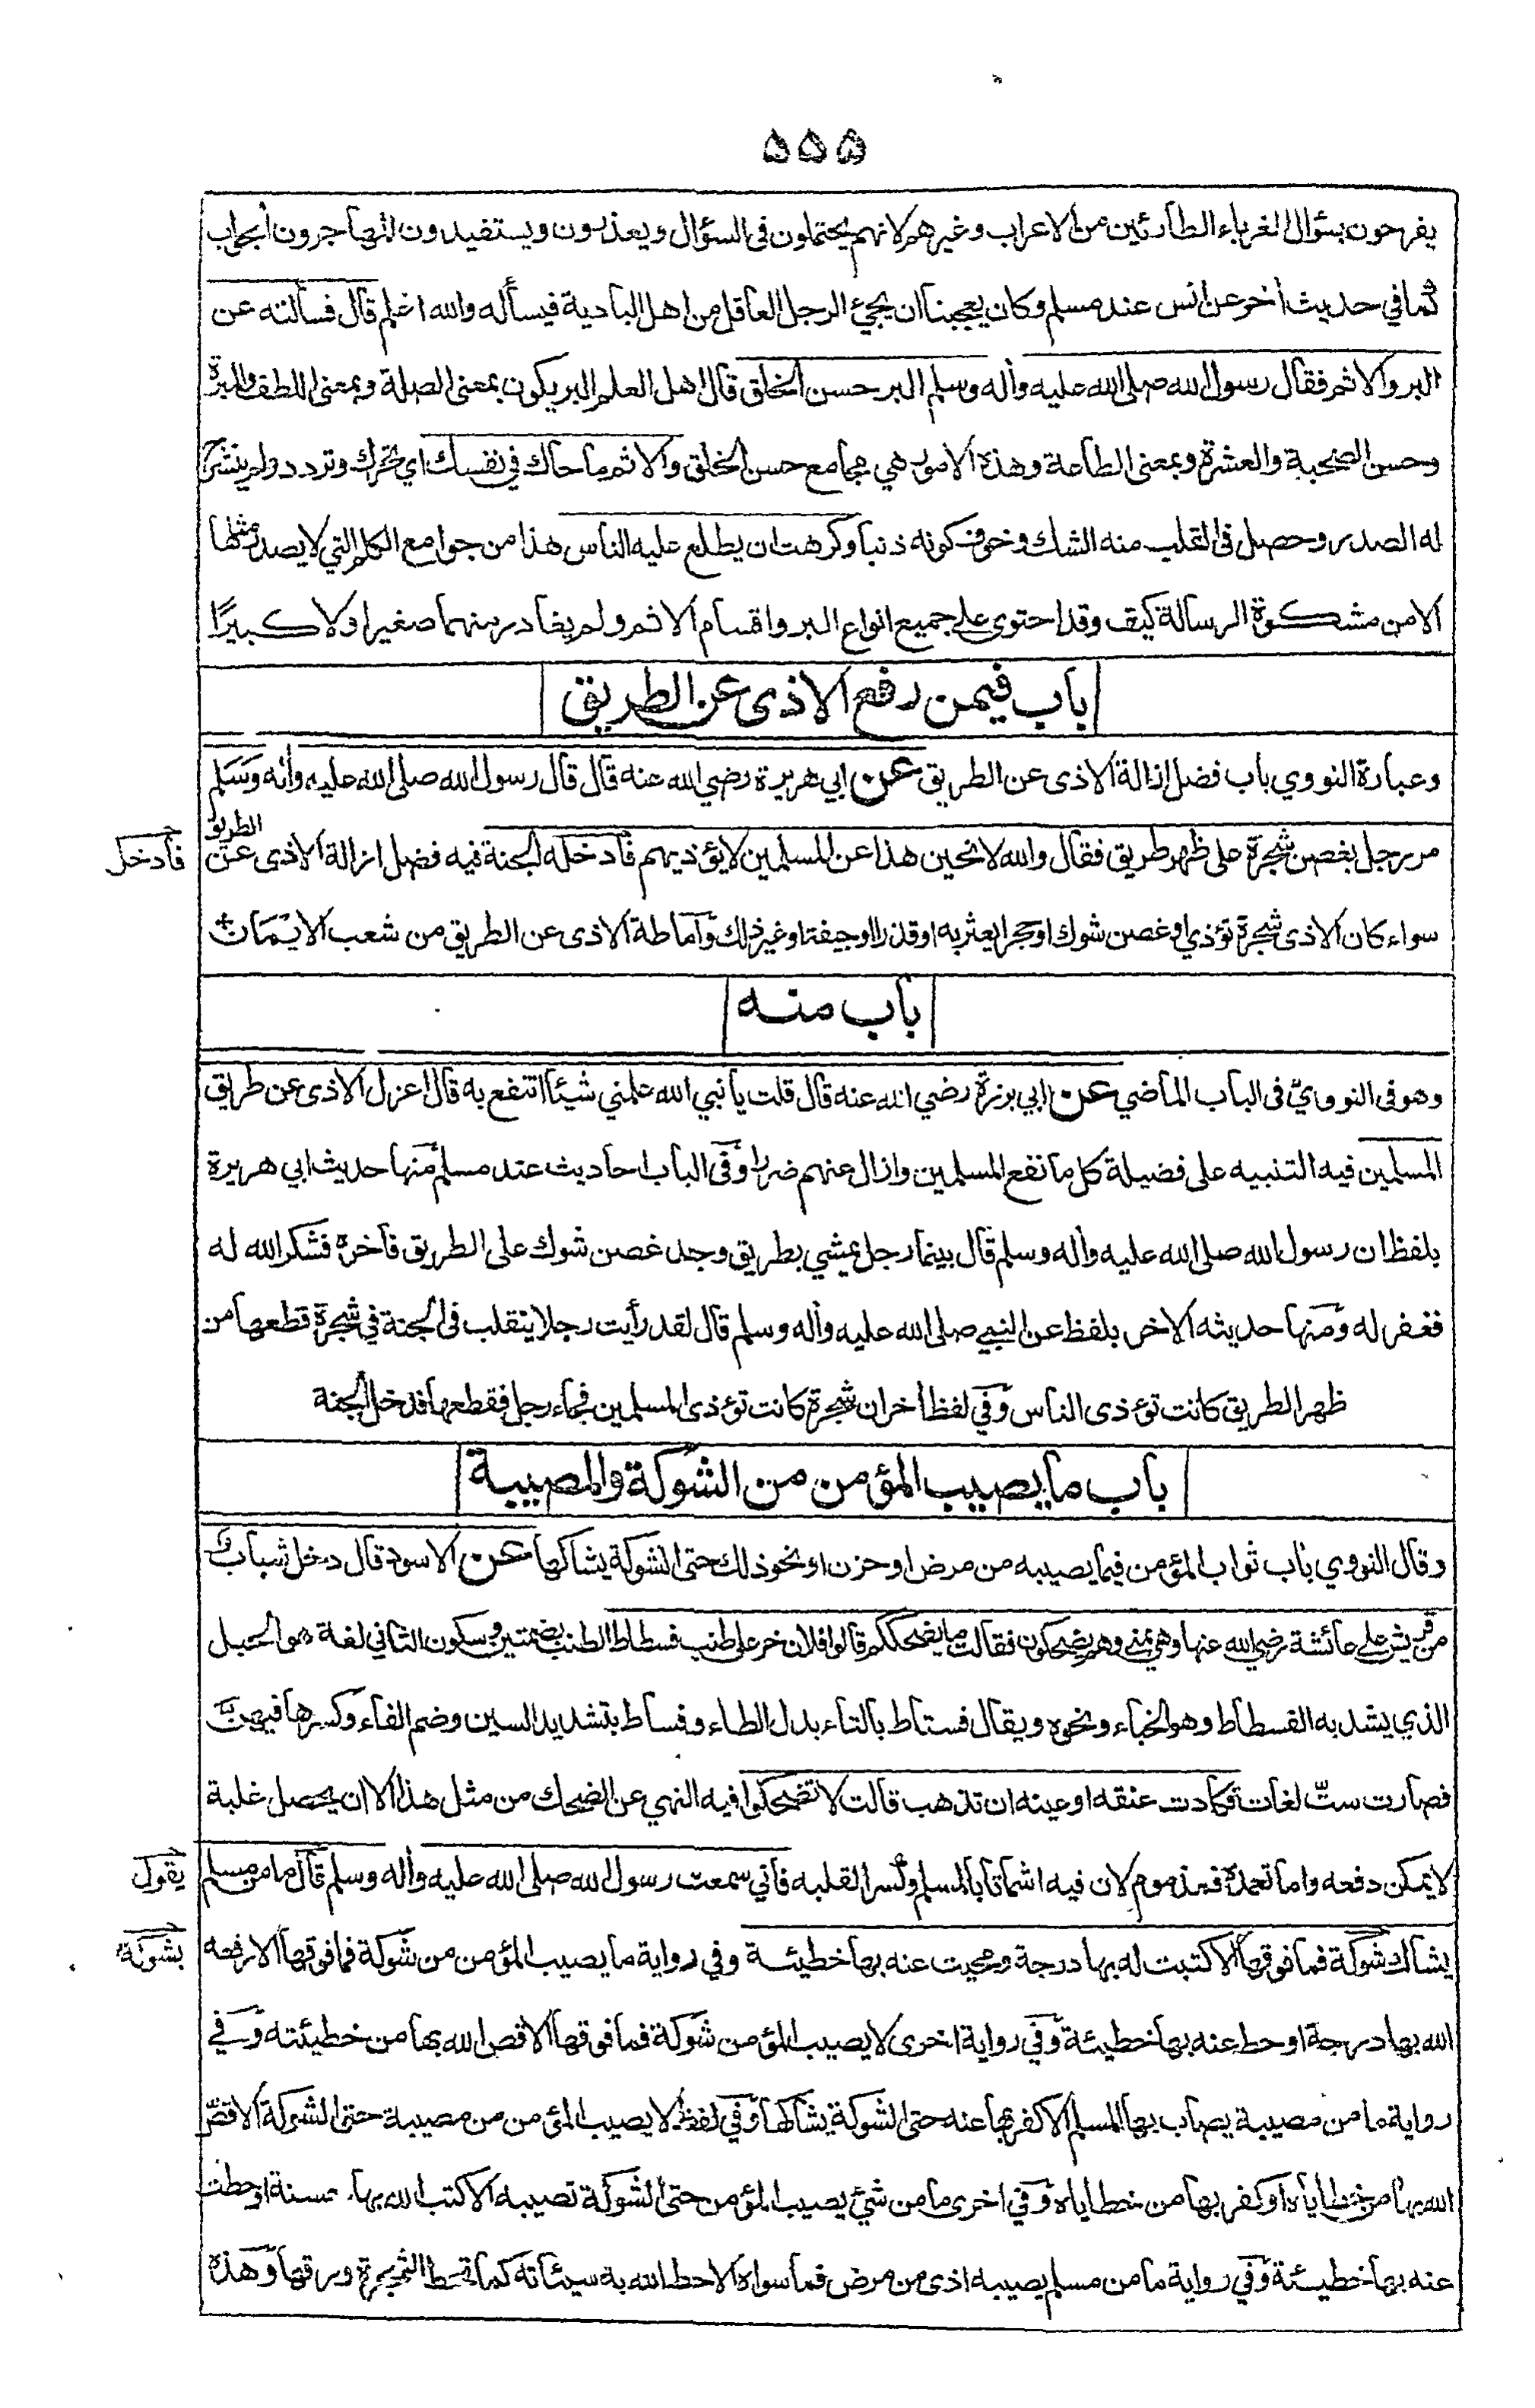 ۵۵۵
يفرحون بسؤال الغرباء الطارئين من الاعراب وغيرهم لانهم يحتملون فى السؤال ويعذرون ويستفيدون المهاجرون الجواب
كما في حديث اٰخر عن انس عند مسلم وكان يعجبنا ان يجئ الرجل العاقل من اهل البادية فيسأله والله اعلم قال فسألته عن
البر والاثم فقال رسول الله صلى الله عليه واٰله وسلم البر حسن الخلق قال اهل العلم البر يكون بمعنى الصلة وبمعنى اللطف والمبرة
وحسن الصحبة والعشرة وبمعنى الطاعة وهذه الامور هي مجامع حسن الخلق والاثم ما حاك في نفسك اي تحرك وتردد ولم ينشرح
له الصدر وحصل فى القلب منه الشك وخوف كونه ذنبا وكرهت ان يطلع عليه الناس هذا من جوامع الكلم التي لا يصدر مثلها
الا من مشكوة الرسالة كيف وقد احتوى على جميع انواع البر واقسام الاثم ولم يغادر منهما صغيرا ولا كبيرًا
باب فيمن رفع الاذى عن الطريق
وعبارة النووي باب فضل ازالة الاذى عن الطريق عن ابي هريرة رضي الله عنه قال قال رسول الله صلى الله عليه واٰله وسلم
مر رجل بغصن شجرة على ظهر طريق فقال والله لانحين هذا عن المسلمين لا يؤذيهم فأدخله الجنة فيه فضل ازالة الاذى عن الطريق
فأدخل
سواء كان الاذى شجرة تؤذي او غصن شوك او حجرا يعثر به او قذرا او جيفة او غير ذلك واماطة الاذى عن الطريق من شعب الايمان
باب منه
وهو فى النووي فى الباب الماضي عن ابي برزة رضي الله عنه قال قلت يا نبي الله علمني شيئا انتفع به قال اعزل الاذى عن طريق
المسلمين فيه التنبيه على فضيلة كل ما نفع المسلمين وازال عنهم ضررا وفى الباب احاديث عند مسلم منها حديث ابي هريرة
بلفظ ان رسول الله صلى الله عليه واٰله وسلم قال بينما رجل يمشي بطريق وجد غصن شوك على الطريق فأخره فشكر الله له
فغفر له ومنها حديثه الاٰخر بلفظ عن النبي صلى الله عليه واٰله وسلم قال لقد رأيت رجلا يتقلب فى الجنة في شجرة قطعها من
ظهر الطريق كانت تؤذى الناس وفي لفظ اٰخر ان شجرة كانت تؤذى المسلمين فجاء رجل فقطعها فدخل الجنة
باب ما يصيب المؤمن من الشوكة والمصيبة
وقال النووي باب ثواب المؤمن فيما يصيبه من مرض او حزن او نحو ذلك حتى الشوكة يشاكها عن الاسود قال دخل شباب
من قريش على عائشة رضي الله عنها وهي بمنى وهم يضحكون فقالت ما يضحككم قالوا فلان خر على طنب فسطاط الطنب بضمتين وسكون الثاني لغة هو الحبل
الذي يشد به الفسطاط وهو الخباء ونحوه ويقال فستاط بالتاء بدل الطاء وفساط بتشديد السين وضم الفاء وكسرها فيهن
فصارت ستّ لغات فكادت عنقه او عينه ان تذهب قالت لا تضحكوا فيه النهي عن الضحك من مثل هذا الا ان يحصل غلبة
لا يمكن دفعه واما تعمده فمذموم لان فيه اشماتا بالمسلم وكسرا لقلبه فاني سمعت رسول الله صلى الله عليه واٰله وسلم قال ما من مسلم
يقول
يشاك شوكة فما فوقها الا كتبت له بها درجة ومحيت عنه بها خطيئة وفي رواية ما يصيب المؤمن من شوكة فما فوقها الا رفعه
بشوكة
الله بها درجة او حط عنه بها خطيئة وفي رواية اخرى لا يصيب المؤمن شوكة فما فوقها الا قص الله بها من خطيئته وفي
رواية ما من مصيبة يصاب بها المسلم الا كفر بها عنه حتى الشوكة يشاكها وفي لفظ لا يصيب المؤمن من مصيبة حتى الشوكة الا قصّ
الله بها من خطاياه او كفر بها من خطاياه وفي اخرى ما من شئ يصيب المؤمن حتى الشوكة تصيبه الا كتب الله بها حسنة او حطت
عنه بها خطيئة وفي رواية ما من مسلم يصيبه اذى من مرض فما سواه الا حط الله به سيئاته كما تحط الشجرة ورقها وهذه